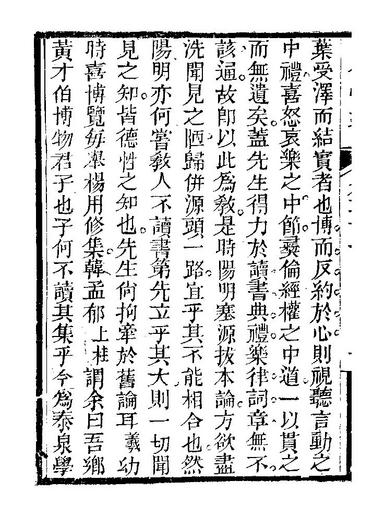 葉受澤而結實者也博而反約於心則視聽言動之
中禮喜怒哀樂之中節彛倫經權之中道一以貫之
而無遺矣葢先生得力於讀書典禮樂律詞章無不
該逼故卽以此爲敎是時陽明塞源拔本論方欲盡
洗聞見之陋歸併源頭一路宜乎其不能相合也然
陽明亦何嘗敎人不讀書第先立乎其大則一切聞
見之知皆德性之知也先生尙拘牽於舊論耳羲幼
時喜博覽每舉楊用修集韓孟郁上桂謂余曰吾鄕
黃才伯博物君子也子何不讀其集乎今爲泰泉學